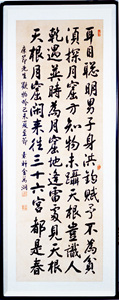 耳目聰明男子身洪鈞賦予不為貧
須探月窟方知物未躡天根豈識人
乾遇巽時觀月窟地逢雷處見天根
天根月窟閒來往三十六宮都是春
康節先生觀物吟己未夏